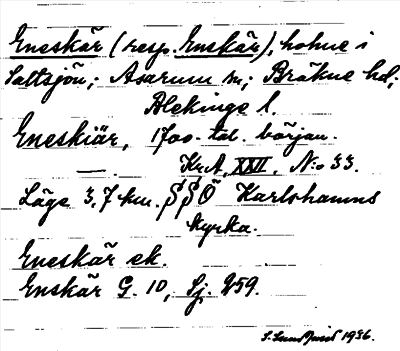 Eneskär (resp. Enskär), holme i
Saltsjön; Asarum sn; Bräkne hd;
Blekinge l.
Eneskiär, 1700-tal. början.
— . Kr.A. XXVI. N:o 33.
Läge 3,7 km. S S Ö Karlshamns
kyrka.
Eneskär ek.
Enskär G. 10, Sj. 259.
1936.